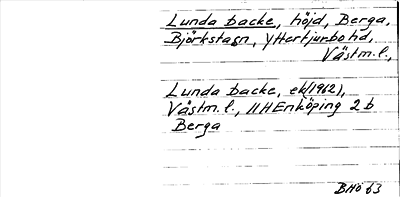 Lunda backe, höjd, Berga,
Björkstagn, YHertjurbo hd,
Västm.l.,
Lunda backe, ek(1962),
Västm.l., 11HEnköping 2 b
Berga
BHö 63